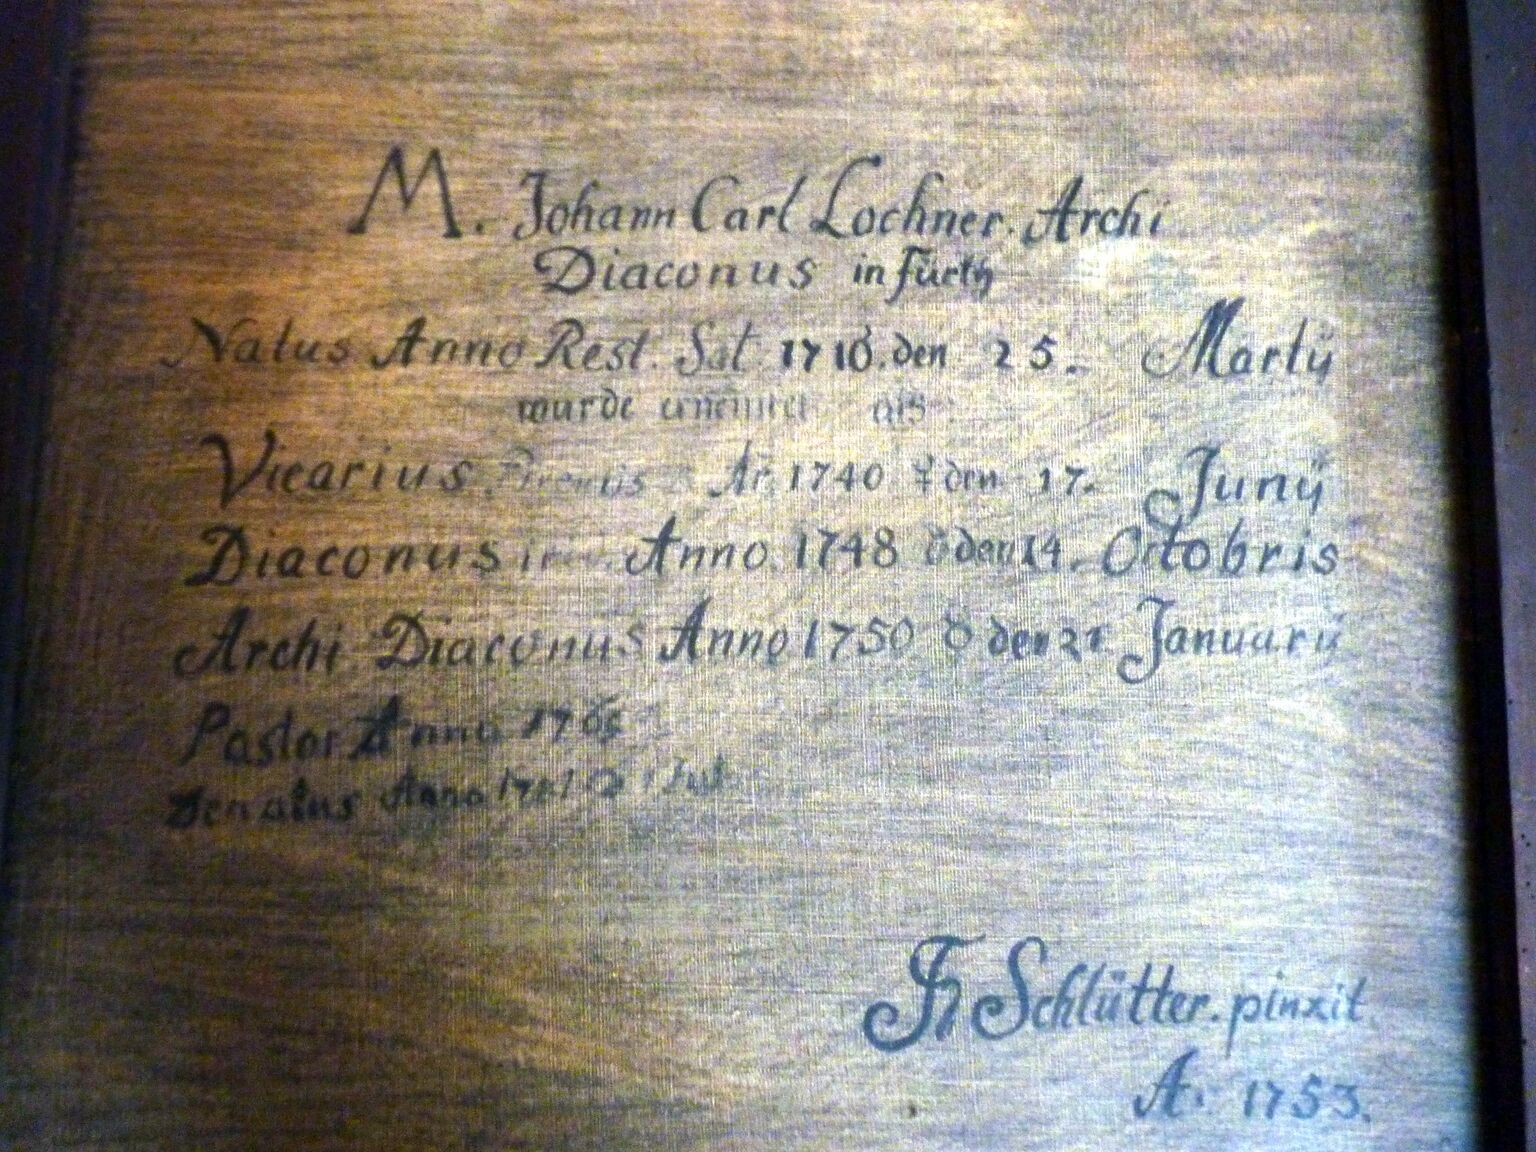 M. Johann Carl Lochner. Archi
Diaconus in Fürth
Natus Anno Rest. Sal. 1710. den 25. Martÿ
wurde als
Vicarius Aō. 1740 ♀ den 17. Junÿ
Diaconus Anno 1748 den 14. Octobris
Archi Diaconus Anno 1750 den 21 Januarÿ
Pastor Anno
Denatus Anno
Schlütter. pinxit
A. 1753.